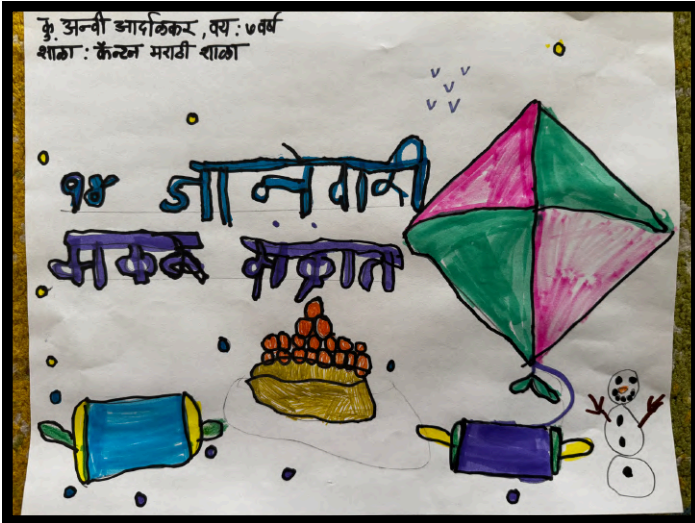 कु. अन्वी आर्दाळकर, वय : ७ वर्ष
शाळा : कॅन्टन मराठी शाळा
१४ जानेवारी
मकर संक्रांत